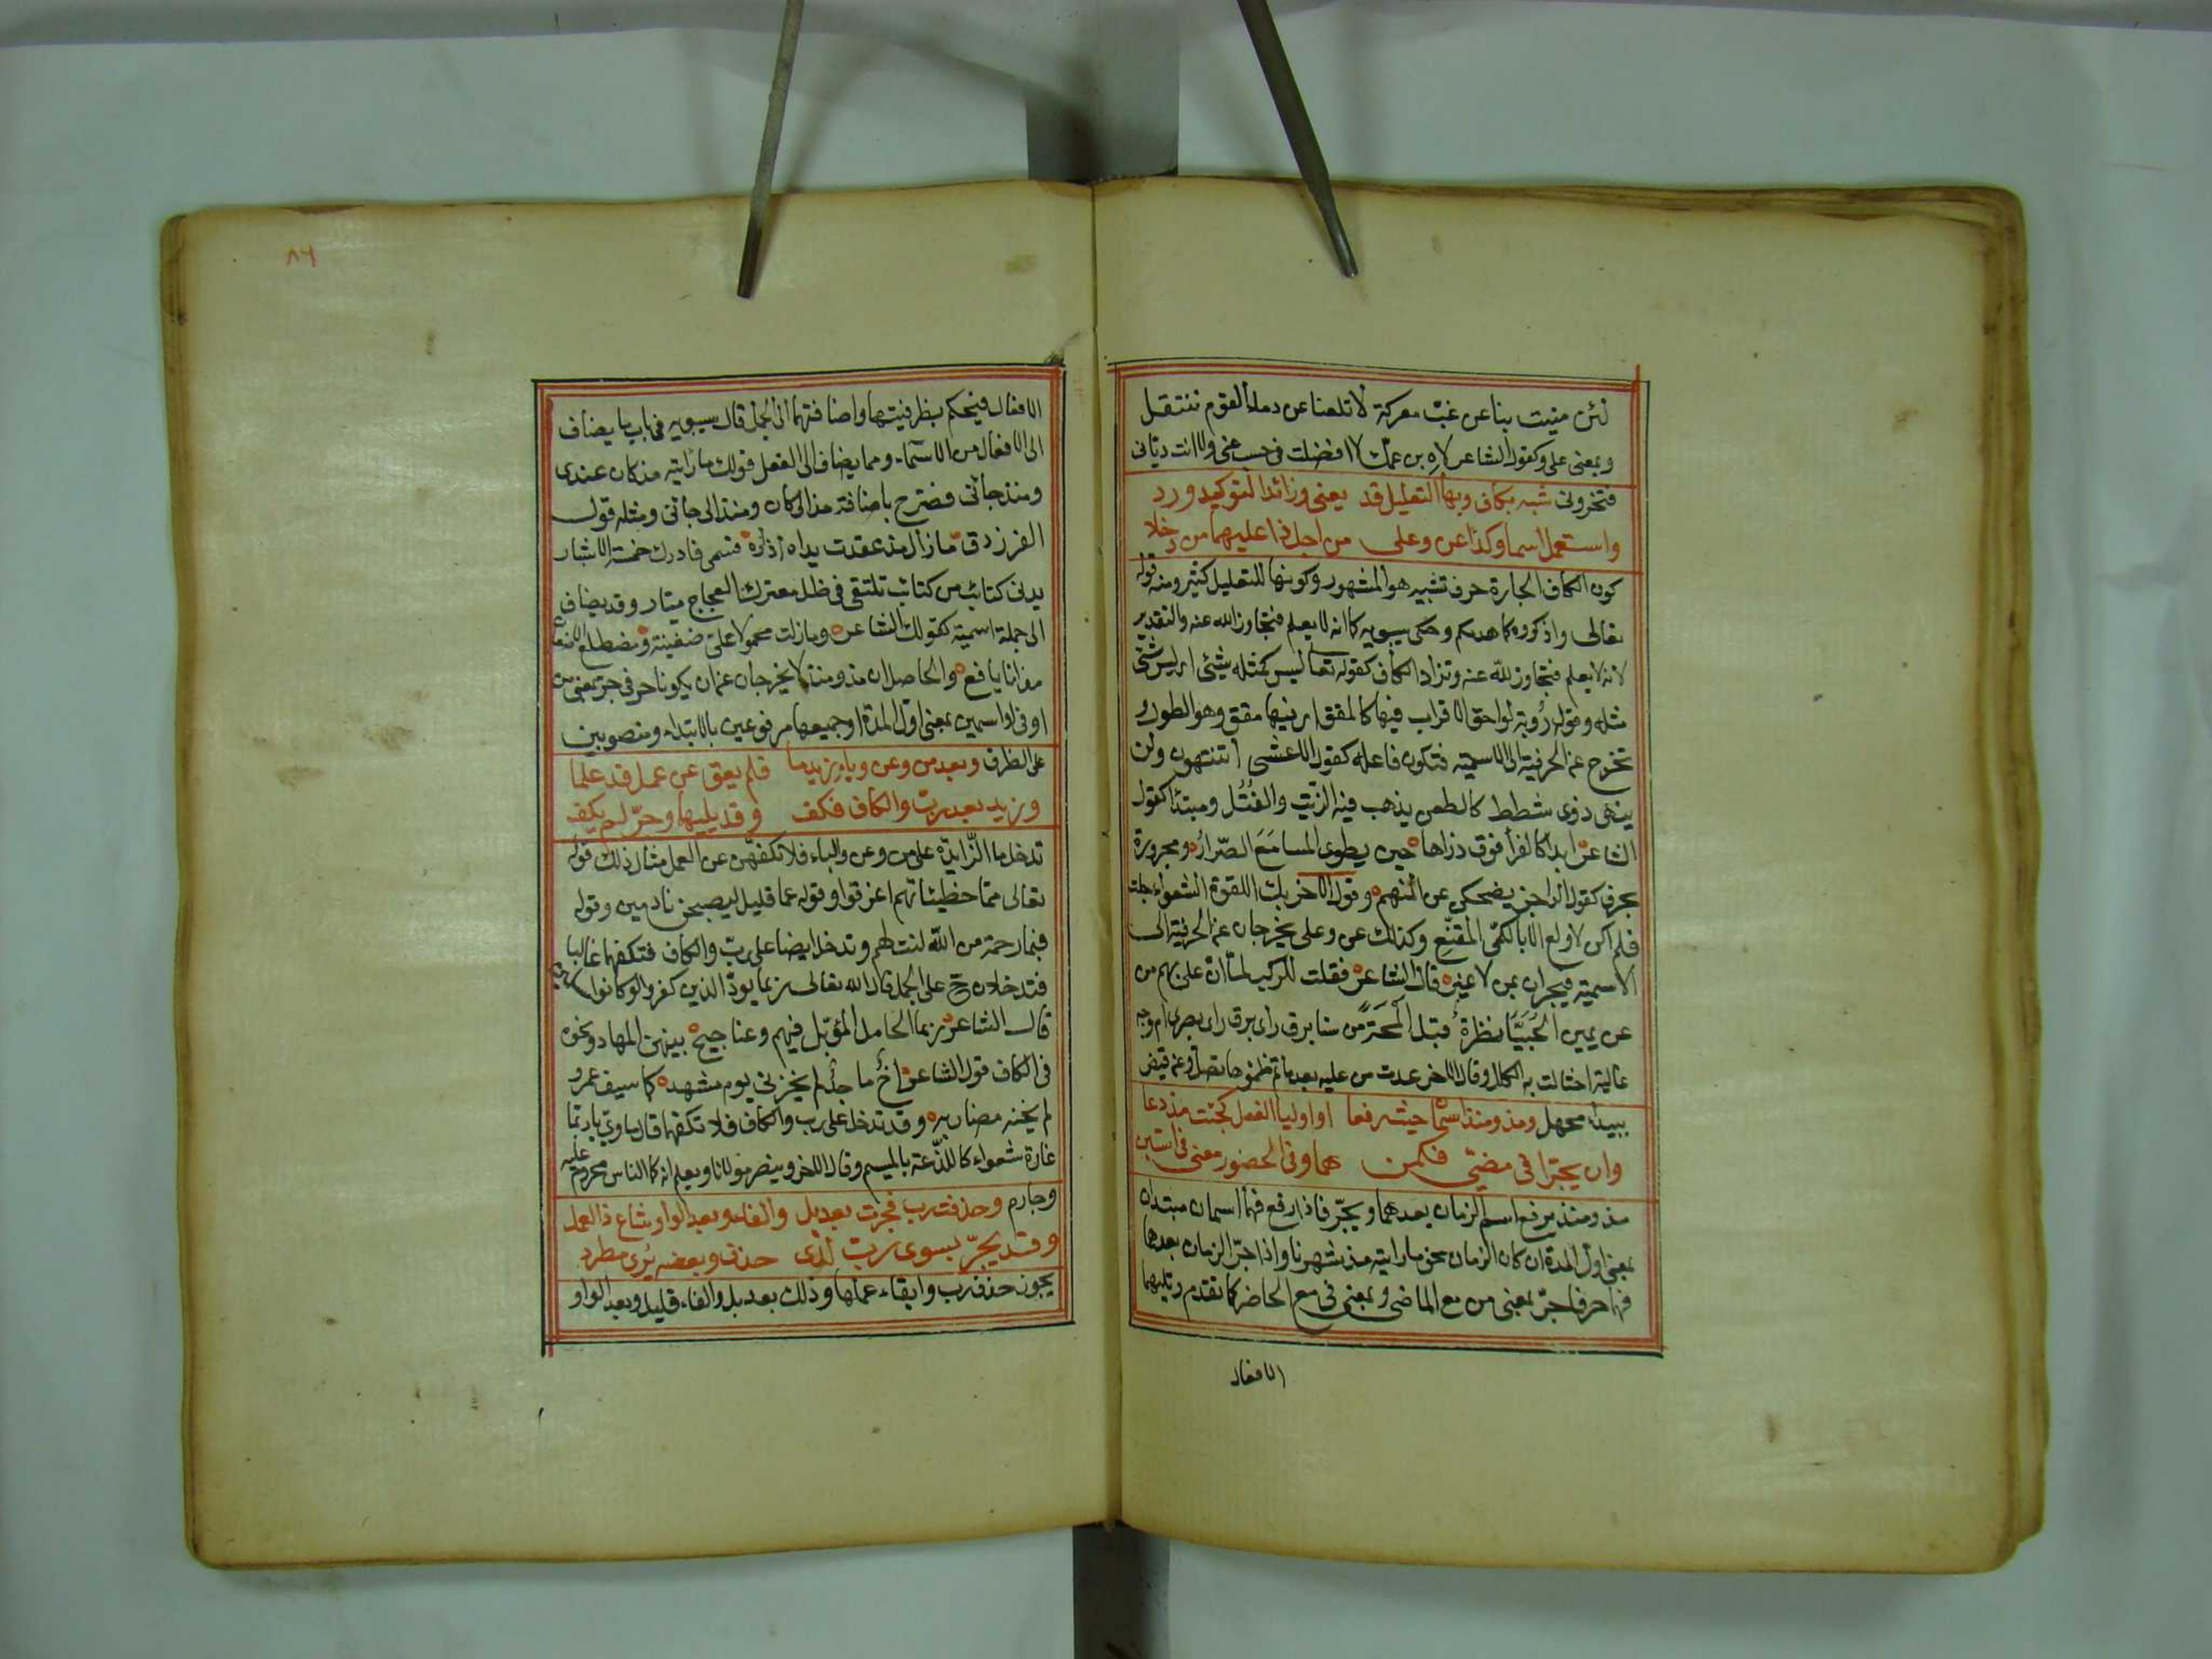 لئن منيت بنا عن غبّ معركة لا تلفنا عن دماء القوم ننتفل
وبمعنى على وكقول الشاعر لاه بن عمك لا افضلت في حسب عني ولا انت دياني
فتخزوني شبه بكاف وبها التعليل قد يعني وزائدا لتوكيد ورد
واستعمل اسما وكذا عن وعلى من اجل ذا عليهما من دخلا
كون الكاف الجارة حرف تشبيه هو المشهور وكونها للتعليل كثير ومنه قوله
تعالى واذكروه كما هديكم وحكى سيبويه كما انه لا يعلم فتجاوز الله عنه والتقدير
لانه لا يعلم فتجاوز الله عنه وتزاد الكاف كقوله تعالى ليس كمثله شيئ اي ليس شيئ
مثله وقوله رؤبة لواحق الاقراب فيها كالمقق اي فيها مقق وهو الطور و
تخرج عن الحرفية الى الاسمية فتكون فاعله كقول الاعشى اتنتهون ولن
ينهى ذوى شطط كالطعن يذهب فيه الزيت والفتل ومبتدا كقول
الشاعر ابدا كالفرأ فوق ذراها حين يطوى المسامع الصّرار ومجرورة
بحرف كقول الراجز يضحكن عن المنهم وقول الاخر بك اللقوة الشعواء جلت
فلم اكن لاولع الا بالكمي المقنّع وكذلك عن وعلى يخرجان عن الحرفية الى
الاسمية فيجران بمن لا غيره قال الشاعر فقلت للركب لما ان على بهم من
عن يمين الحبيّا نظرة قبل المحة من سنا برق راى برق راى بصرى ام وجه
عالية اختالت به الكلل وقال الاخر غدت من عليه بعد ما تم ظمئوها تصل وعن قيض
ببيداء مجهل ومذ ومنذ اسمان حيث رفعا او اوليا الفعل كجئت مذ دعا
وان يجرّا في مضيّ فكمن هما وفي الحضور معنى في استبن
مذ ومنذ يرفع اسم الزمان بعدهما ويجرّ فاذا رفع فهما اسمان مبتدان
بمعنى اول المدة ان كان الزمان نحو ما رايته مذ شهرنا واذا جرّ الزمان بعدها
فهما حرفا جرّ بمعنى من مع الماضى وبمعنى في مع الحاضر كما تقدم ويليهما
الافعال
٨٦
الافعال فيحكم بظرفيتها واضافتهما الى الجمل قال سيبويه في باب ما يضاف
الى الافعال من الاسماء ومما يضاف الى الفعل قولك ما رايته مذ كان عندى
ومنذ جائني فصرح باضافة مذ الى كان ومنذ الى جائني ومثله قول
الفرزدق ما زال مذ عقدت يداه ازاره فسمى فادرك خمسة الاشبار
يدنى كتائب من كتائب تلتقي في ظل معترك العجاج مثار وقد يضاف
الى جملة اسمية كقولك الشاعر وما زلت محمولا على ضغينة ومضطلع الاضغان
مذ انا يافع والحاصل ان مذ ومنذ لا يخرجان عن ان يكونا حرفي جرّ بمعنى من
او في او اسمين بمعنى اول المدة او جميعها مرفوعين بالابتداء ومنصوبين
على الظرف وبعد من وعن وباء زيد ما فلم يعق عن عمل قد علما
وزيد بعد ربّ والكاف فكف وقد يليها وجرّ لم يكف
تدخل ما الزّايدة على من وعن والباء فلا تكفهن عن العمل مثال ذلك قوله
تعالى مما خطيئاتهم اغرقوا وقوله عما قليل ليصبحن نادمين وقوله
فبما رحمة من الله لنت لهم وتدخل ايضا على ربّ والكاف فتكفهما غالبا
فتدخلان ح على الجمل قال الله تعالى ربما يودّ الذين كفروا لو كانوا
قال الشاعر ربما الحامل المؤبّل فيهم وعناجيج بينهن المهار ونحوه
في الكاف قول الشاعر اخ ماجد لم يخزني يوم مشهد كما سيف عمرو
لم يخنه مضاربه وقد تدخل على رب والكاف فلا تكفها قال ماوي يا ربتما
غارة شعواء كاللذّعة بالميسم وقال الاخر وينصر مولانا ويعلم انه كما الناس مجروم عليه
وجارم وحذفت رب فجرت بعد بل والفاء وبعد الواو شاع ذا العمل
وقد يجرّ بسوى ربّ لذى حذف وبعضه يُرى مطرد
يجوز حذف رب وابقاء عملها وذلك بعد بل والفاء قليل وبعد الواو